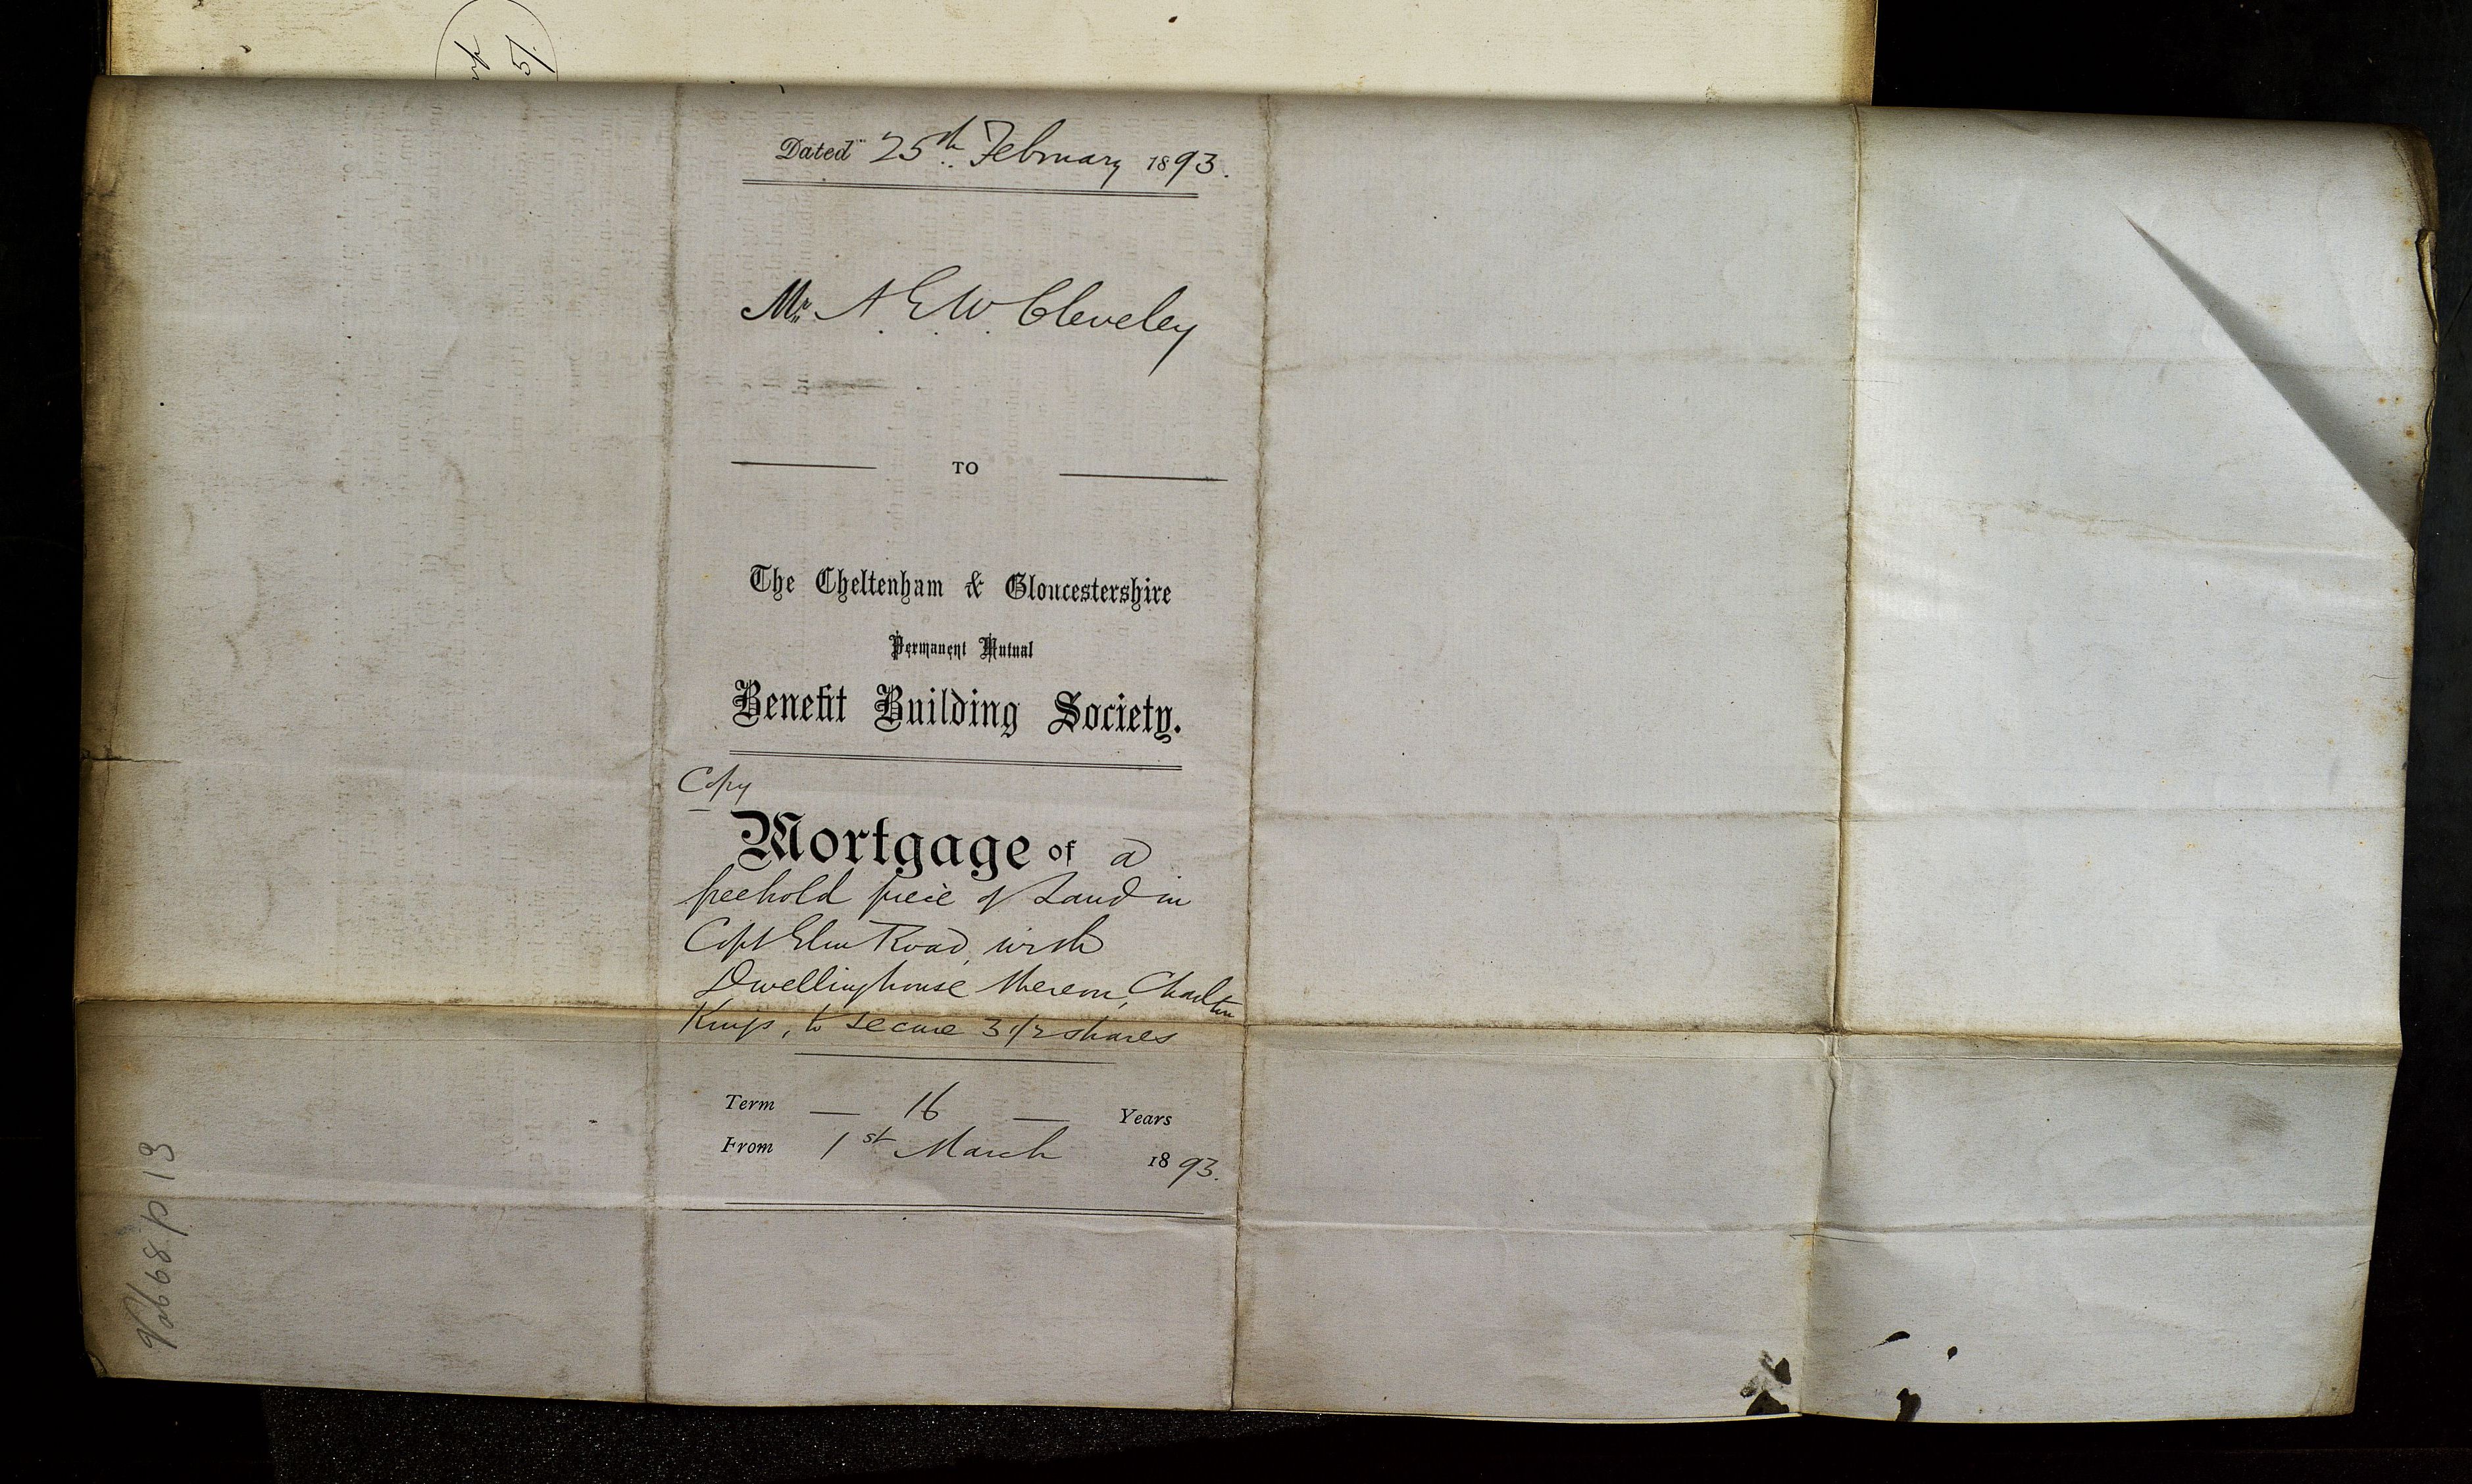 Dated 25th February 1893.
Mr A. E. W. Cleveley
TO
The Cheltenham & Gloucestershire
Permanent Mutual
Benefit Building Society.
Copy
Mortgage of a
freehold piece of Land in
Copt Elm Road, with
Dwellinghouse thereon, Charlton
Kings, to secure 3 1/2 shares
Term — 16 — Years
From 1st March 1893.
668 p 13